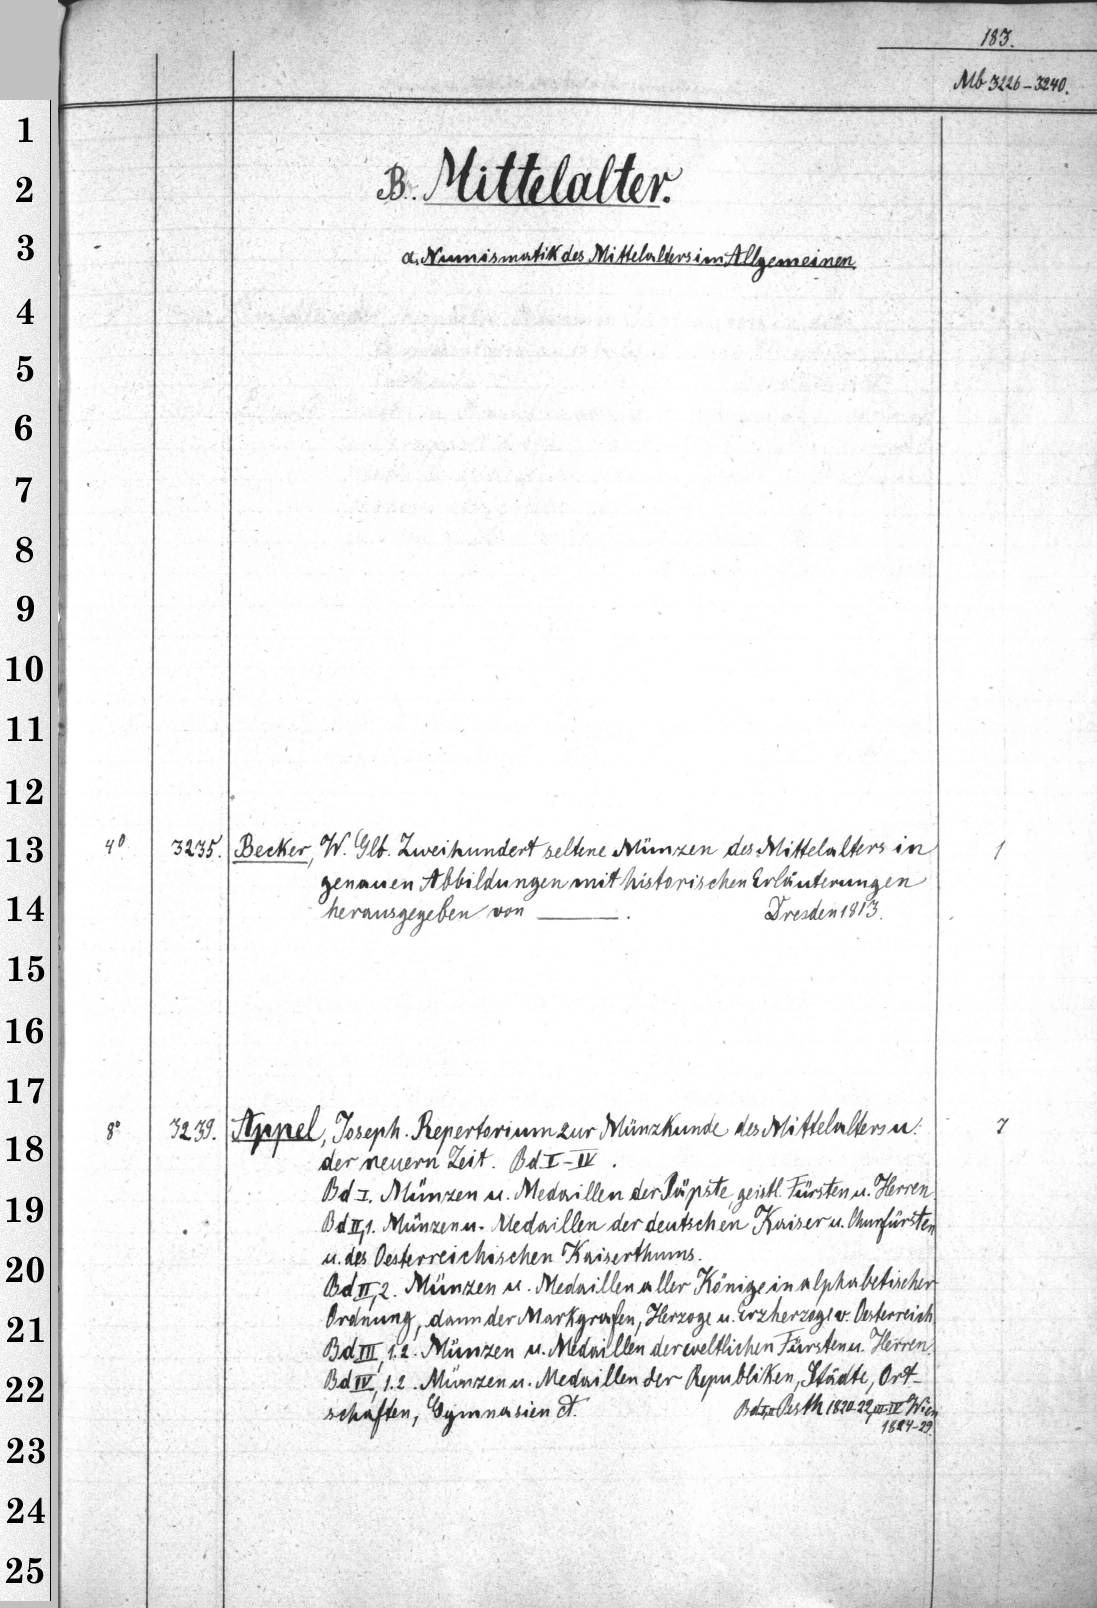 183.
Mb 3226-3240.
B. Mittelalter.
a. Numismatik des Mittelalters im Allgemeinen.
4° 3235. Becker, W. Glb. Zweihundert seltene Münzen des Mittelalters in 1
genauen Abbildungen mit historischen Erläuterungen
herausgegeben von ———. Dresden 1813.
8° 3239. Appel, Joseph. Repertorium zur Münzkunde des Mittelalters u. 7
der neuern Zeit. Bd I-IV.
Bd I. Münzen u. Medaillen der Päpste, geistl. Fürsten u. Herren
Bd II,1. Münzen u. Medaillen der deutschen Kaiser u. Churfürsten
u. des Oesterreichischen Kaiserthums.
Bd II,2. Münzen u. Medaillen aller Könige in alphabetischer
Ordnung, dann der Markgrafen, Herzoge u. Erzherzoge v. Oesterreich
Bd III, 1.2. Münzen u. Medaillen der weltlichen Fürsten u. Herren.
Bd IV, 1.2. Münzen u. Medaillen der Republiken, Städte, Ort-
schaften, Gymnasien ct. Bd I,II Pesth 1820-22, III-IV Wien
1824-29.
1
2
3
4
5
6
7
8
9
10
11
12
13
14
15
16
17
18
19
20
21
22
23
24
25